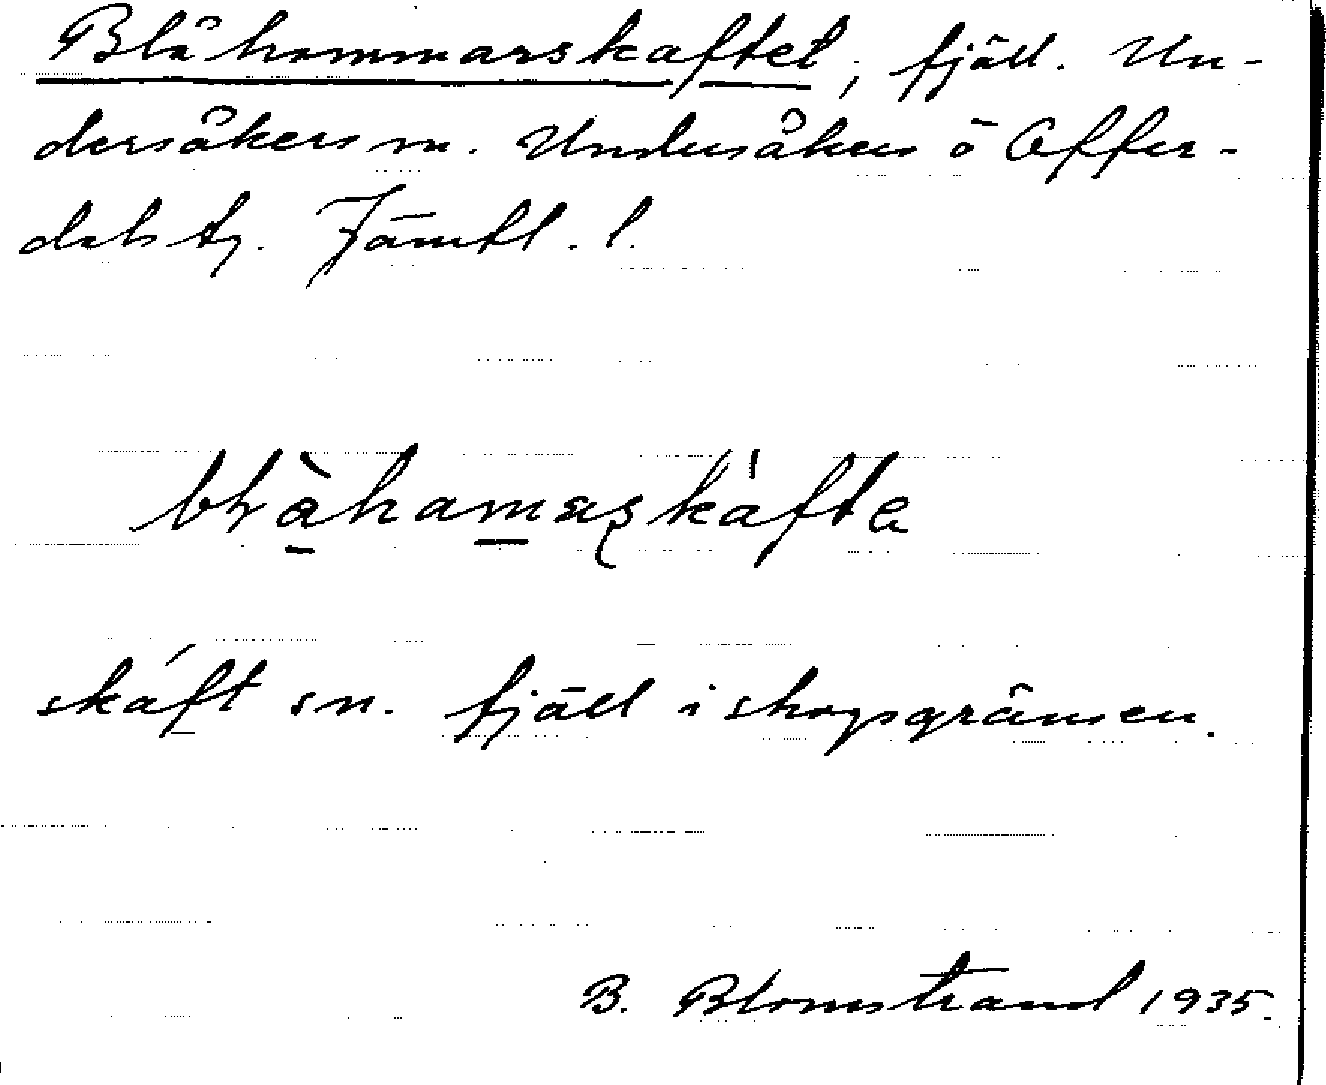 Blåhammarskaftet, fjäll. Un-
dersåkers sn. Undersåkers o Offer-
dals tg. Jämtl. l.
skáft sn. fjäll i skogsgränsen.
B. Blomstrand 1935.